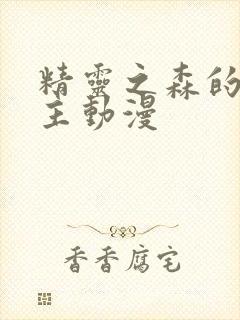 精靈之森的
主動漫
香香腐宅